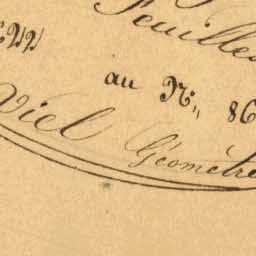 Feuille
au N° 86
Viel Géomètre